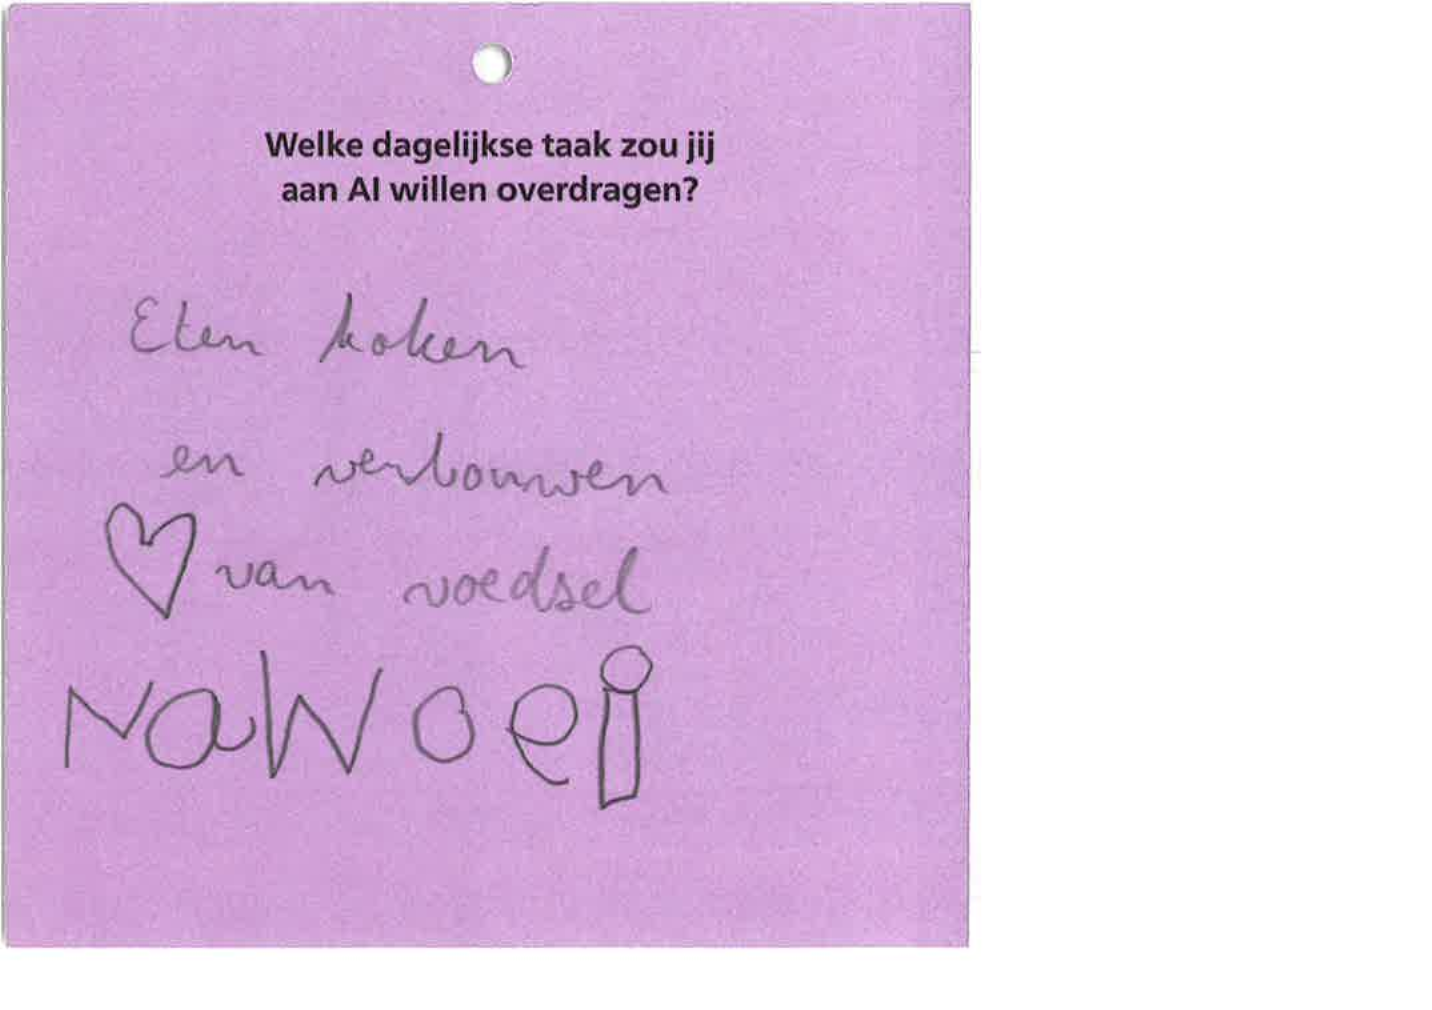 Welke dagelijkse taak zou jij
aan AI willen overdragen?
Eten koken
en verbouwen
van voedsel
NaWoei